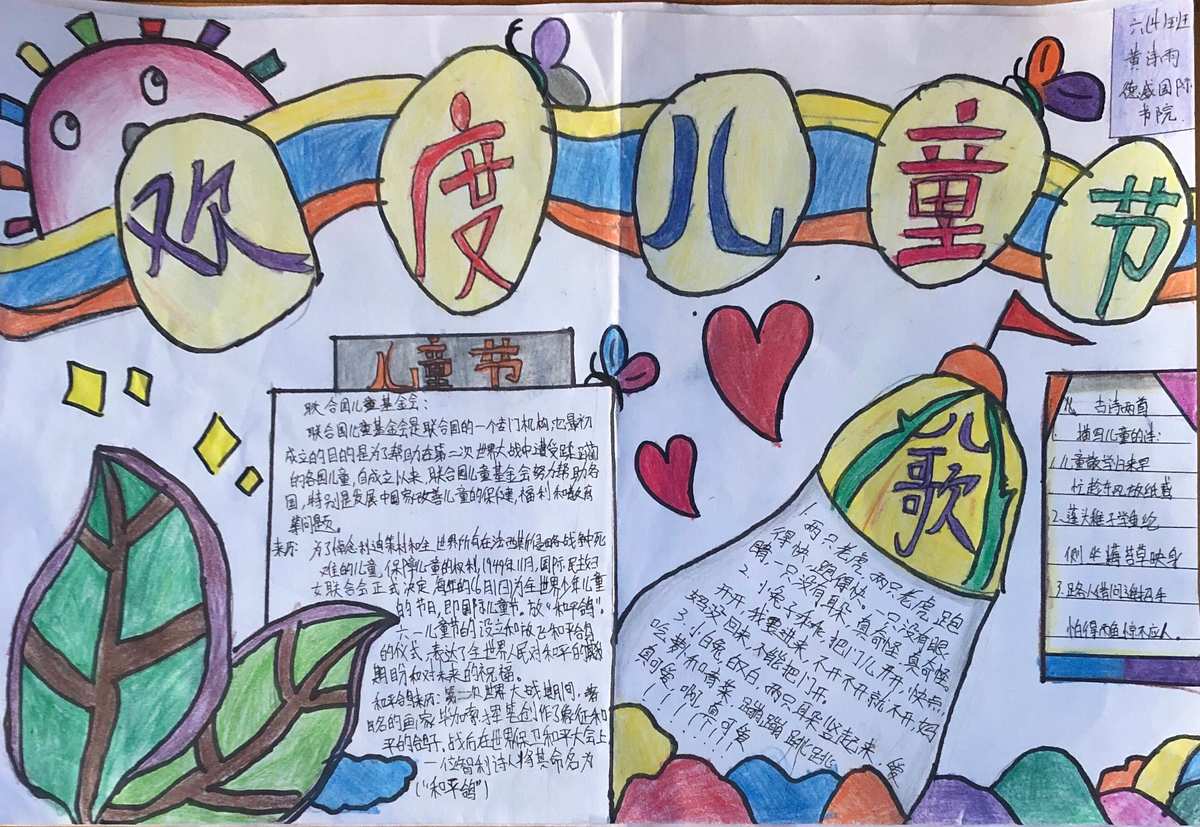 欢度儿童节
六(4)班
黄诗雨
德威国际
书院
儿童节
联合国儿童基金会:
联合国儿童基金会是联合国的一个专门机构也最初
成立的目的是为了帮助在第二次世界大战中遭受
的各国儿童,自成立以来,联合国儿童基金会努力帮助各
国,特别是发展中国家改善儿童的保健,福利和教育
等问题。
来历:为了悼念利迪策村和全世界所有在法西斯侵略战争中死
难的儿童,保障儿童的权利,1949年11月,国际民主妇
女联合会正式决定每年的6月1日为全世界少年儿童
的节日,即国际儿童节。放“和平鸽”。
六一儿童节的设立和放飞和平鸽
的仪式,表达了全世界人民对和平的
期盼和对未来的祝福。
和平鸽来历:第二次世界大战期间,著
名的画家毕加索挥笔创作了象征和
平的鸽子,战后在世界保卫和平大会上
一位智利诗人将其命名为
(“和平鸽”)
儿歌
1.两只老虎,两只老虎,跑
得快,跑得快。一只没有眼
睛,一只没有耳朵,真奇怪,真奇怪。
2.小兔子乖乖,把门儿开,快点
开开,我要进来,不开不开就不开,妈
妈没回来,不能把门开。
3.小白兔,白又白,两只耳朵竖起来,爱
吃萝卜和青菜,蹦蹦跳跳
真可爱,啊,真可爱
!!!!!!!!!
古诗两首
描写儿童的诗:
1.儿童散学归来早
忙趁东风放纸鸢
2.蓬头稚子学垂纶
侧坐莓苔草映身
3.路人借问遥招手
怕得鱼惊不应人。